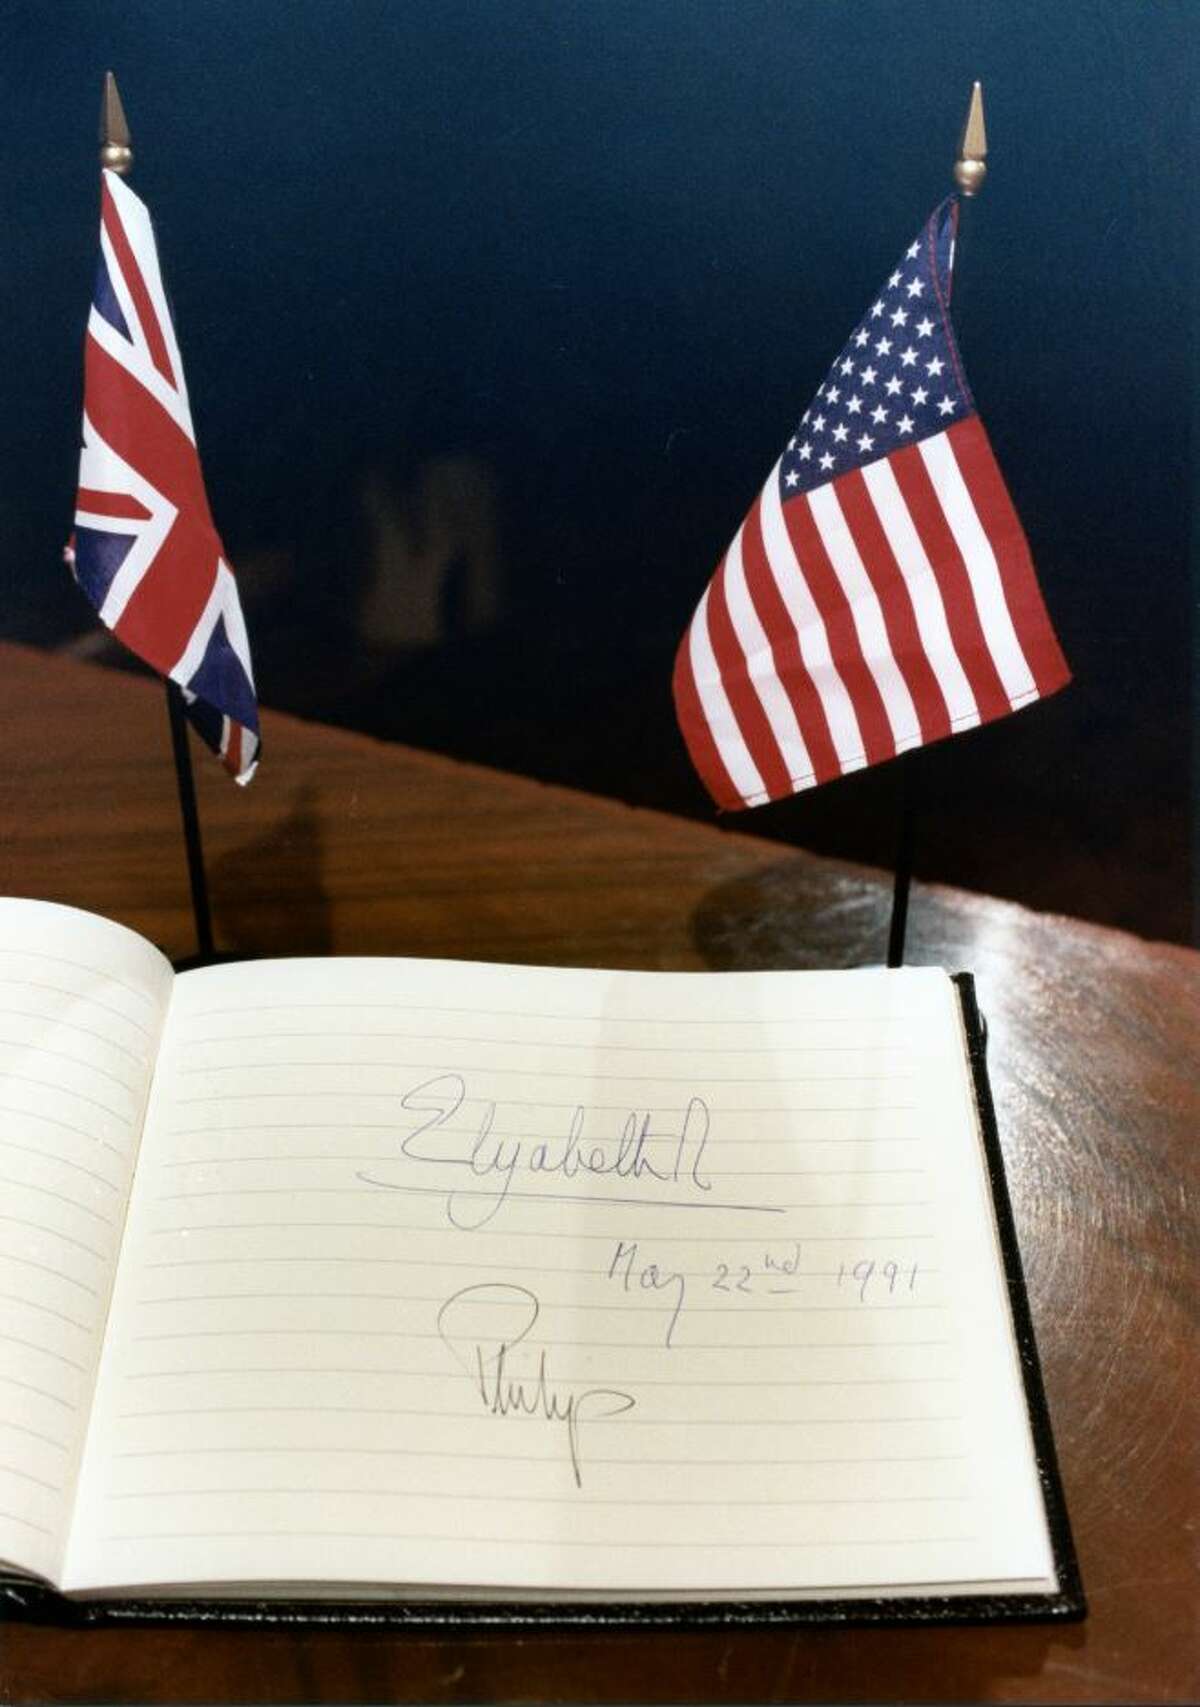 Elizabeth R
May 22nd 1991
Philip